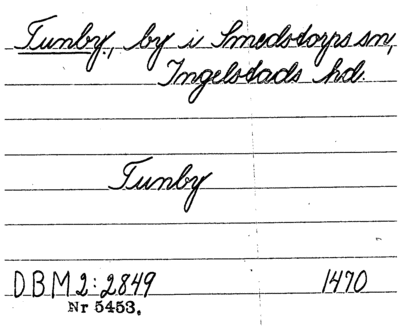 Tunby, by i Smedstorps sn,
Ingelstads hd.
Tunby
DBM 2:2849 1470
Nr 5453.